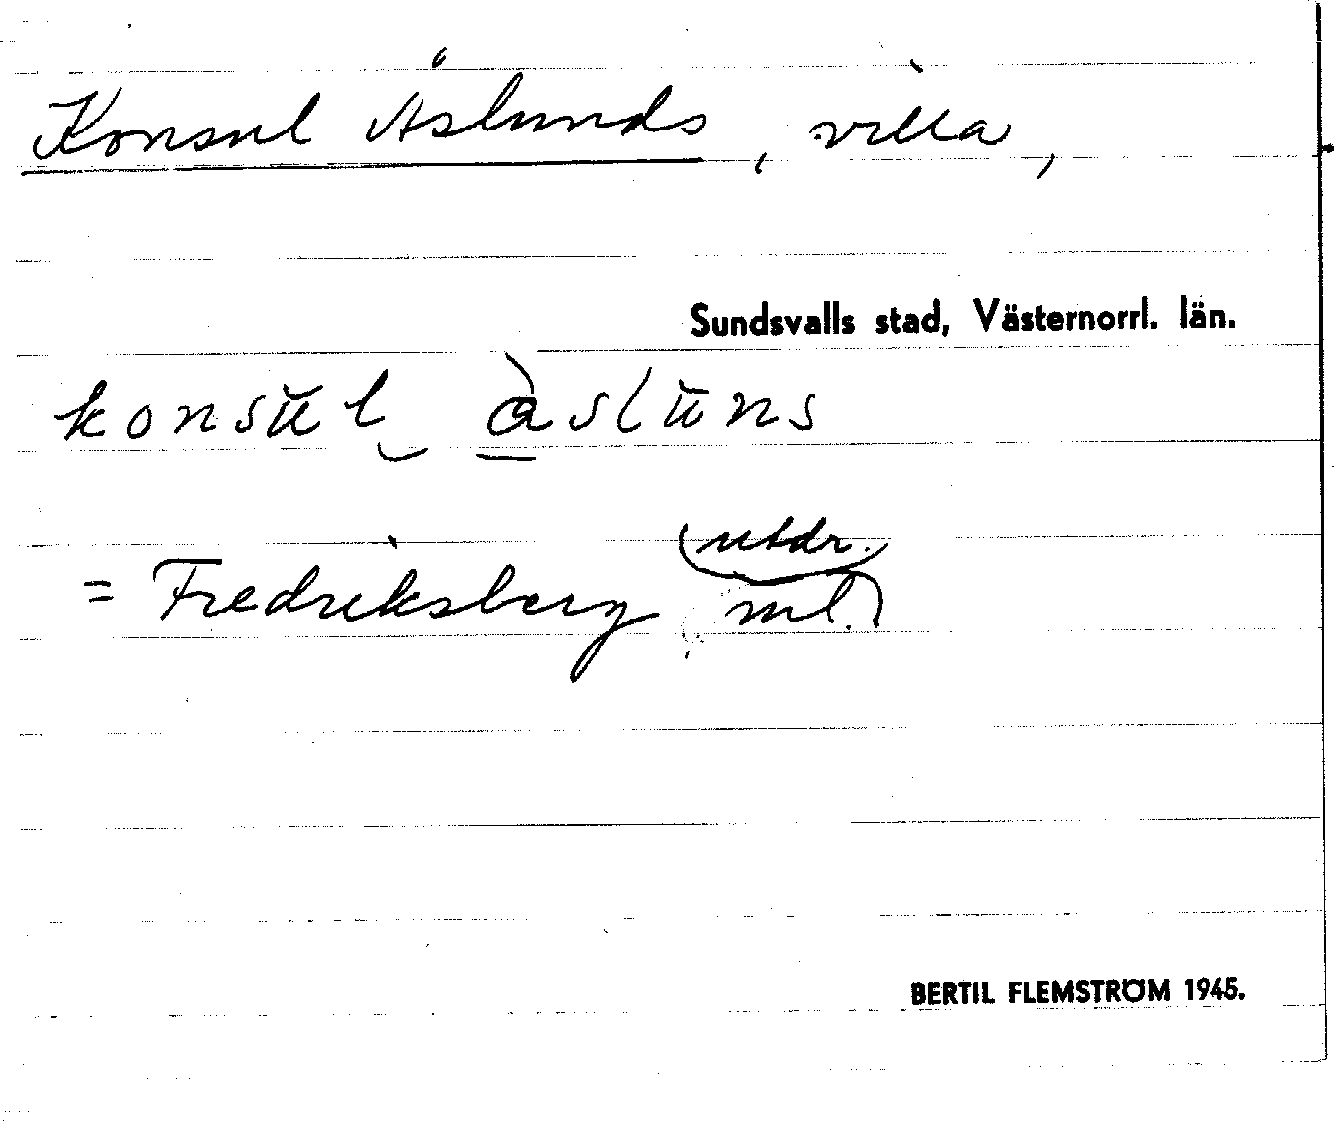 Konsul Åslunds, villa,
Sundsvalls stad, Västernorrl. län.
konsŭl åslŭns
= Fredriksberg (utdr. ml.)
BERTIL FLEMSTRÖM 1945.